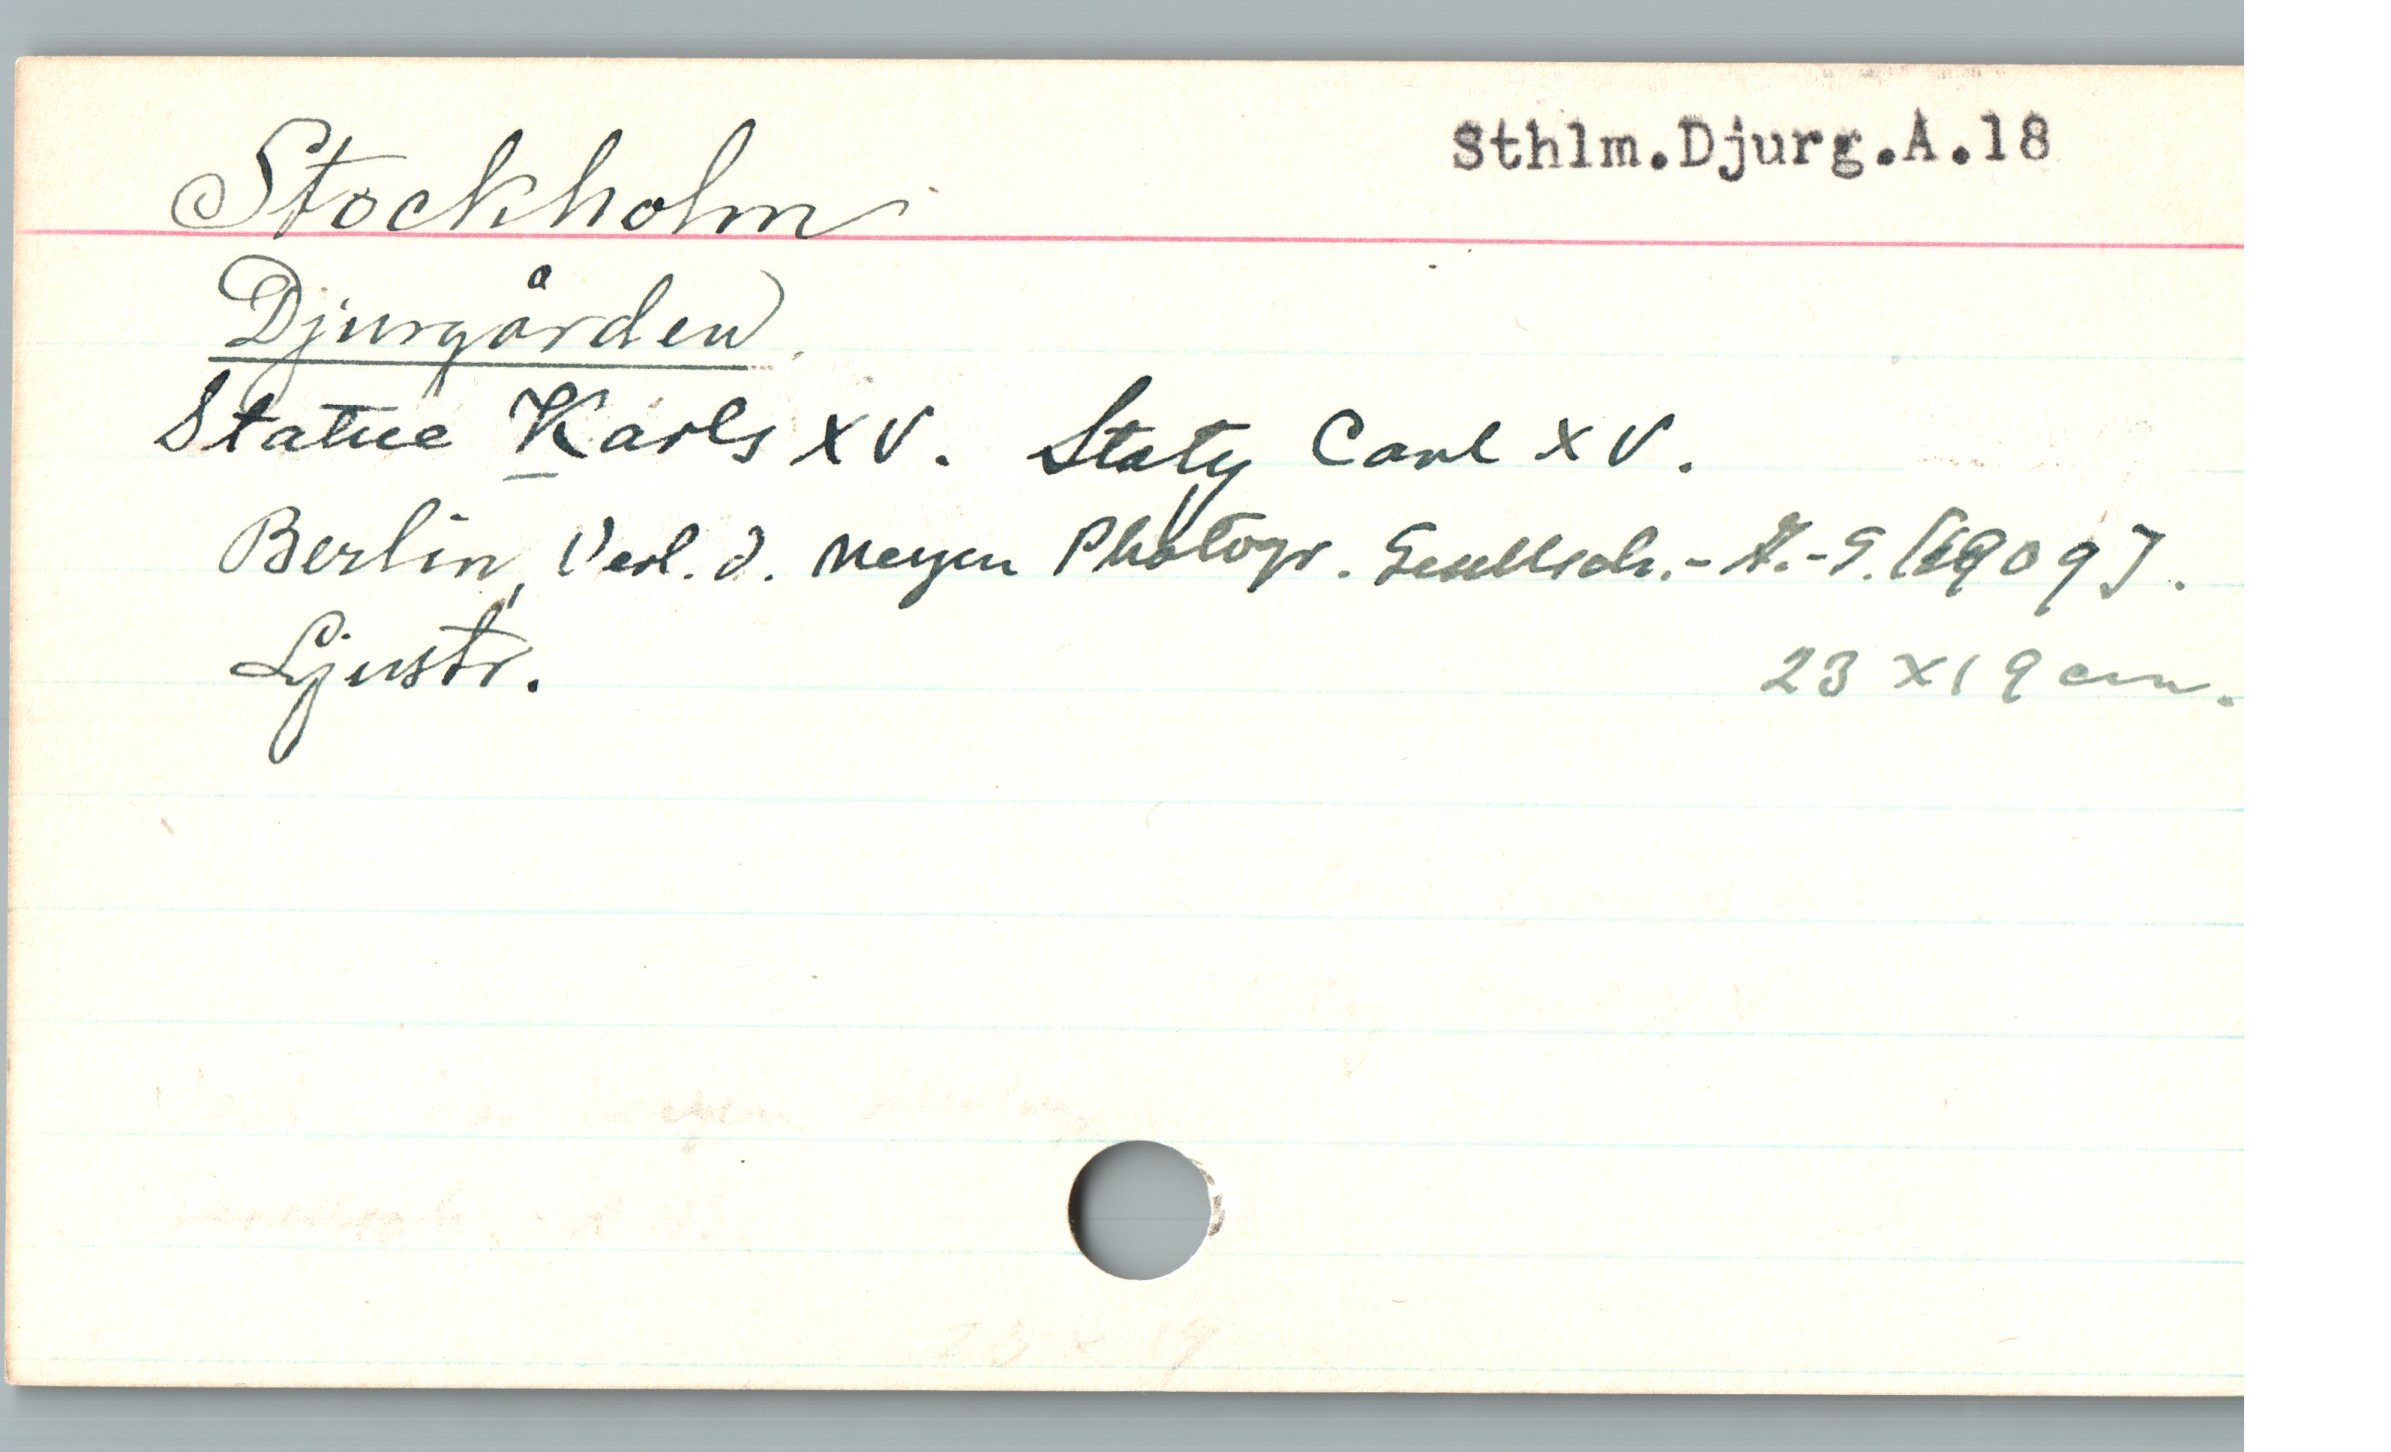 Sthlm.Djurg.A.18
Stockholm
Djurgården.
Statue Karls XV. Staty Carl XV.
Berlin, Verl. d. neuen Photogr. Gesellsch.-A.-G. [1909].
Ljustr.
23 x 19 cm.
23 x 19